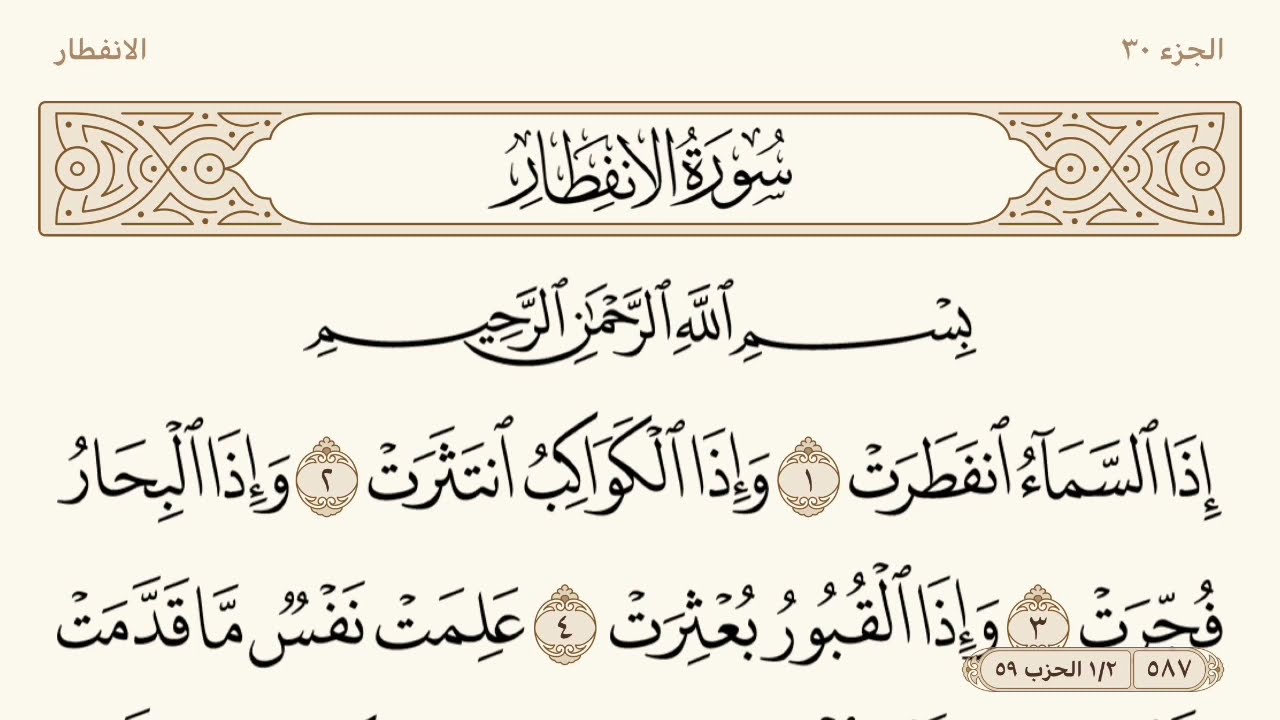 الجزء ٣٠
الانفطار
سُورَةُ الانفِطَارِ
بِسْمِ ٱللَّهِ ٱلرَّحْمَٰنِ ٱلرَّحِيمِ
إِذَا ٱلسَّمَآءُ ٱنفَطَرَتْ ١ وَإِذَا ٱلْكَوَاكِبُ ٱنتَثَرَتْ ٢ وَإِذَا ٱلْبِحَارُ
فُجِّرَتْ ٣ وَإِذَا ٱلْقُبُورُ بُعْثِرَتْ ٤ عَلِمَتْ نَفْسٌ مَّا قَدَّمَتْ
٥٨٧ ١/٢ الحزب ٥٩